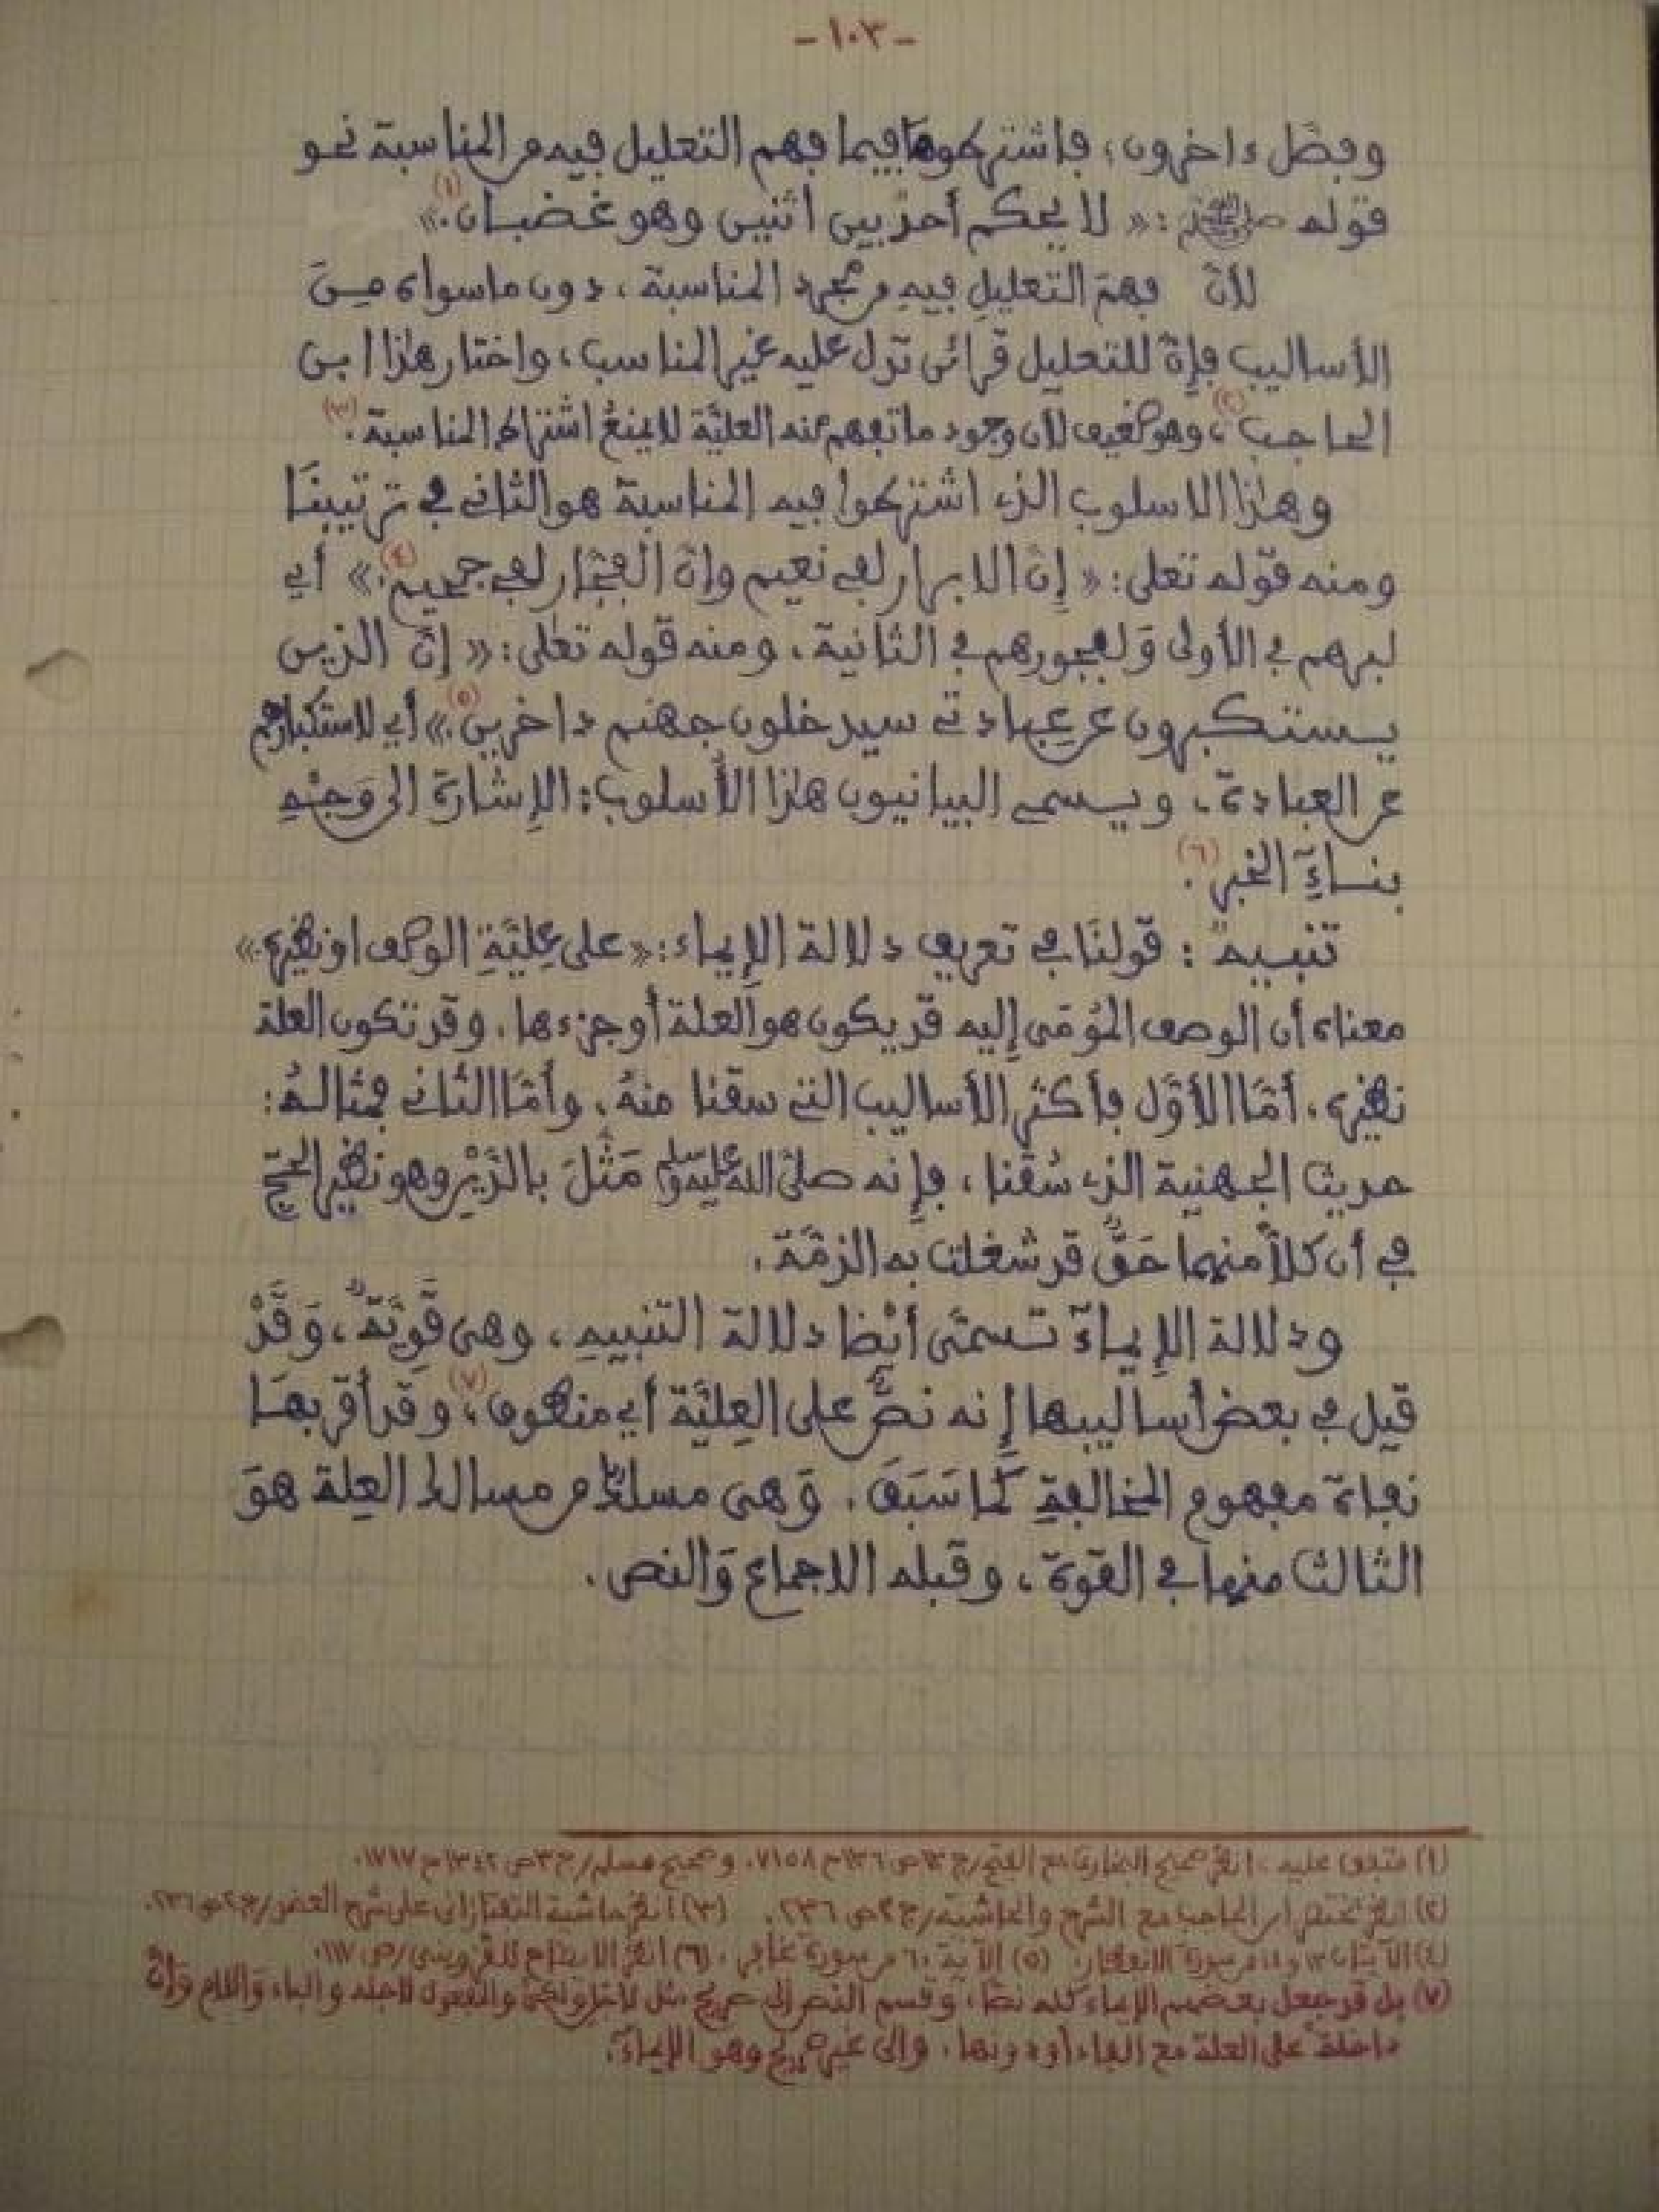 - ١٠٣ -
وفصّل ءاخرون، فاشترطوها فيما فهم التعليل فيه من المناسبة نحو
قوله ﷺ: « لا يحكم أحدٌ بين اثنين وهو غضبان.»(١)
لأنّ فهمَ التعليلِ فيهِ من مجرد المناسبة، دون ما سواه مِنَ
الأساليب فإنّ للتعليل قرائن تدل عليه غير المناسب، واختار هذا ابن
الحاجب(٢)، وهو ضعيف لأن وجود ما تفهم عنه العليَّة لا يمنعُ اشتراط المناسبة(٣).
وهذا الاسلوب الذي اشترطوا فيه المناسبة هو الثاني في ترتيبنَا
ومنه قوله تعلى: « إنّ الابرار لفي نعيم وإنّ الفجّار لفي جحيم(٤).» أي
لبرهم في الأولى وَلفجورهم في الثانية، ومنه قوله تعلى: « إنّ الذين
يستكبرون عن عبادتي سيدخلون جهنم داخرين(٥).» أي لاستكبارهم
عن العبادة، ويسمي البيانيون هذا الأسلوب: الإشارة إلى وَجْهِ
بناءِ الخبر(٦).
تنبيهٌ: قولنَا في تعريف دلالة الإيماء: « على عِليَّةِ الوصف او نظيره»
معناه أن الوصف المُومَى إليه قد يكون هو العلة أو جزءها. وقد تكون العلة
نظيره. أمّا الأوَّل فأكثر الأساليب التي سقنا منهُ، وأمّا الثاني فمثالهُ:
حديث الجهنية الذي سُقنا، فإنه صلّى الله عليه وسلم مَثَّلَ بالدَّيْنِ وهو نظير الحجّ
في أن كلاًّ منهما حَقٌّ قد شغلت به الذمّة.
ودلالة الإيماءِ تسمَّى أيْضا دلالة التنبيهِ، وهي قَوِيَّةٌ، وَقَدْ
قيل في بعض أساليبها إنه نصٌّ على العِليَّة أي منطوق(٧)، وقد أقر بهَا
نفاة مفهوم المخالفةِ كَما سَبَقَ. وَهي مسلكٌ من مسالك العِلة هوَ
الثالث منها في القوة، وقبله الاجماع وَالنص.
(١) متفق عليه، انظر صحيح البخاري مع الفتح/ج ١٣ص ١٣٦ح ٧١٥٨، وصحيح مسلم/ج ٣ص ١٣٤٢ح ١٧١٧.
(٢) انظر مختصر ابن الحاجب مع الشرح والحاشية/ج ٢ص ٢٣٦. (٣) انظر حاشية التفتازاني على شرح العضد/ج ٢ص ٢٣٦.
(٤) الآيتان ١٣ و١٤ من سورة الانفطار. (٥) الآية ٦٠ من سورة غافر. (٦) انظر الايضاح للقزويني/ص ١١٧.
(٧) بل قد جعل بعضهم الإيماء كله نصّا، وقسم النص إلى صريح مثل لأجل ولكي والمفعول لأجله والباء وَاللام وَإنّ
داخلة على العلة مع الفاء او دونها، وإلى غير صريح وهو الإيماءُ.